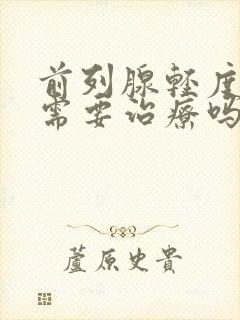 前列腺轻度
需要治疗吗
蘆原史貴